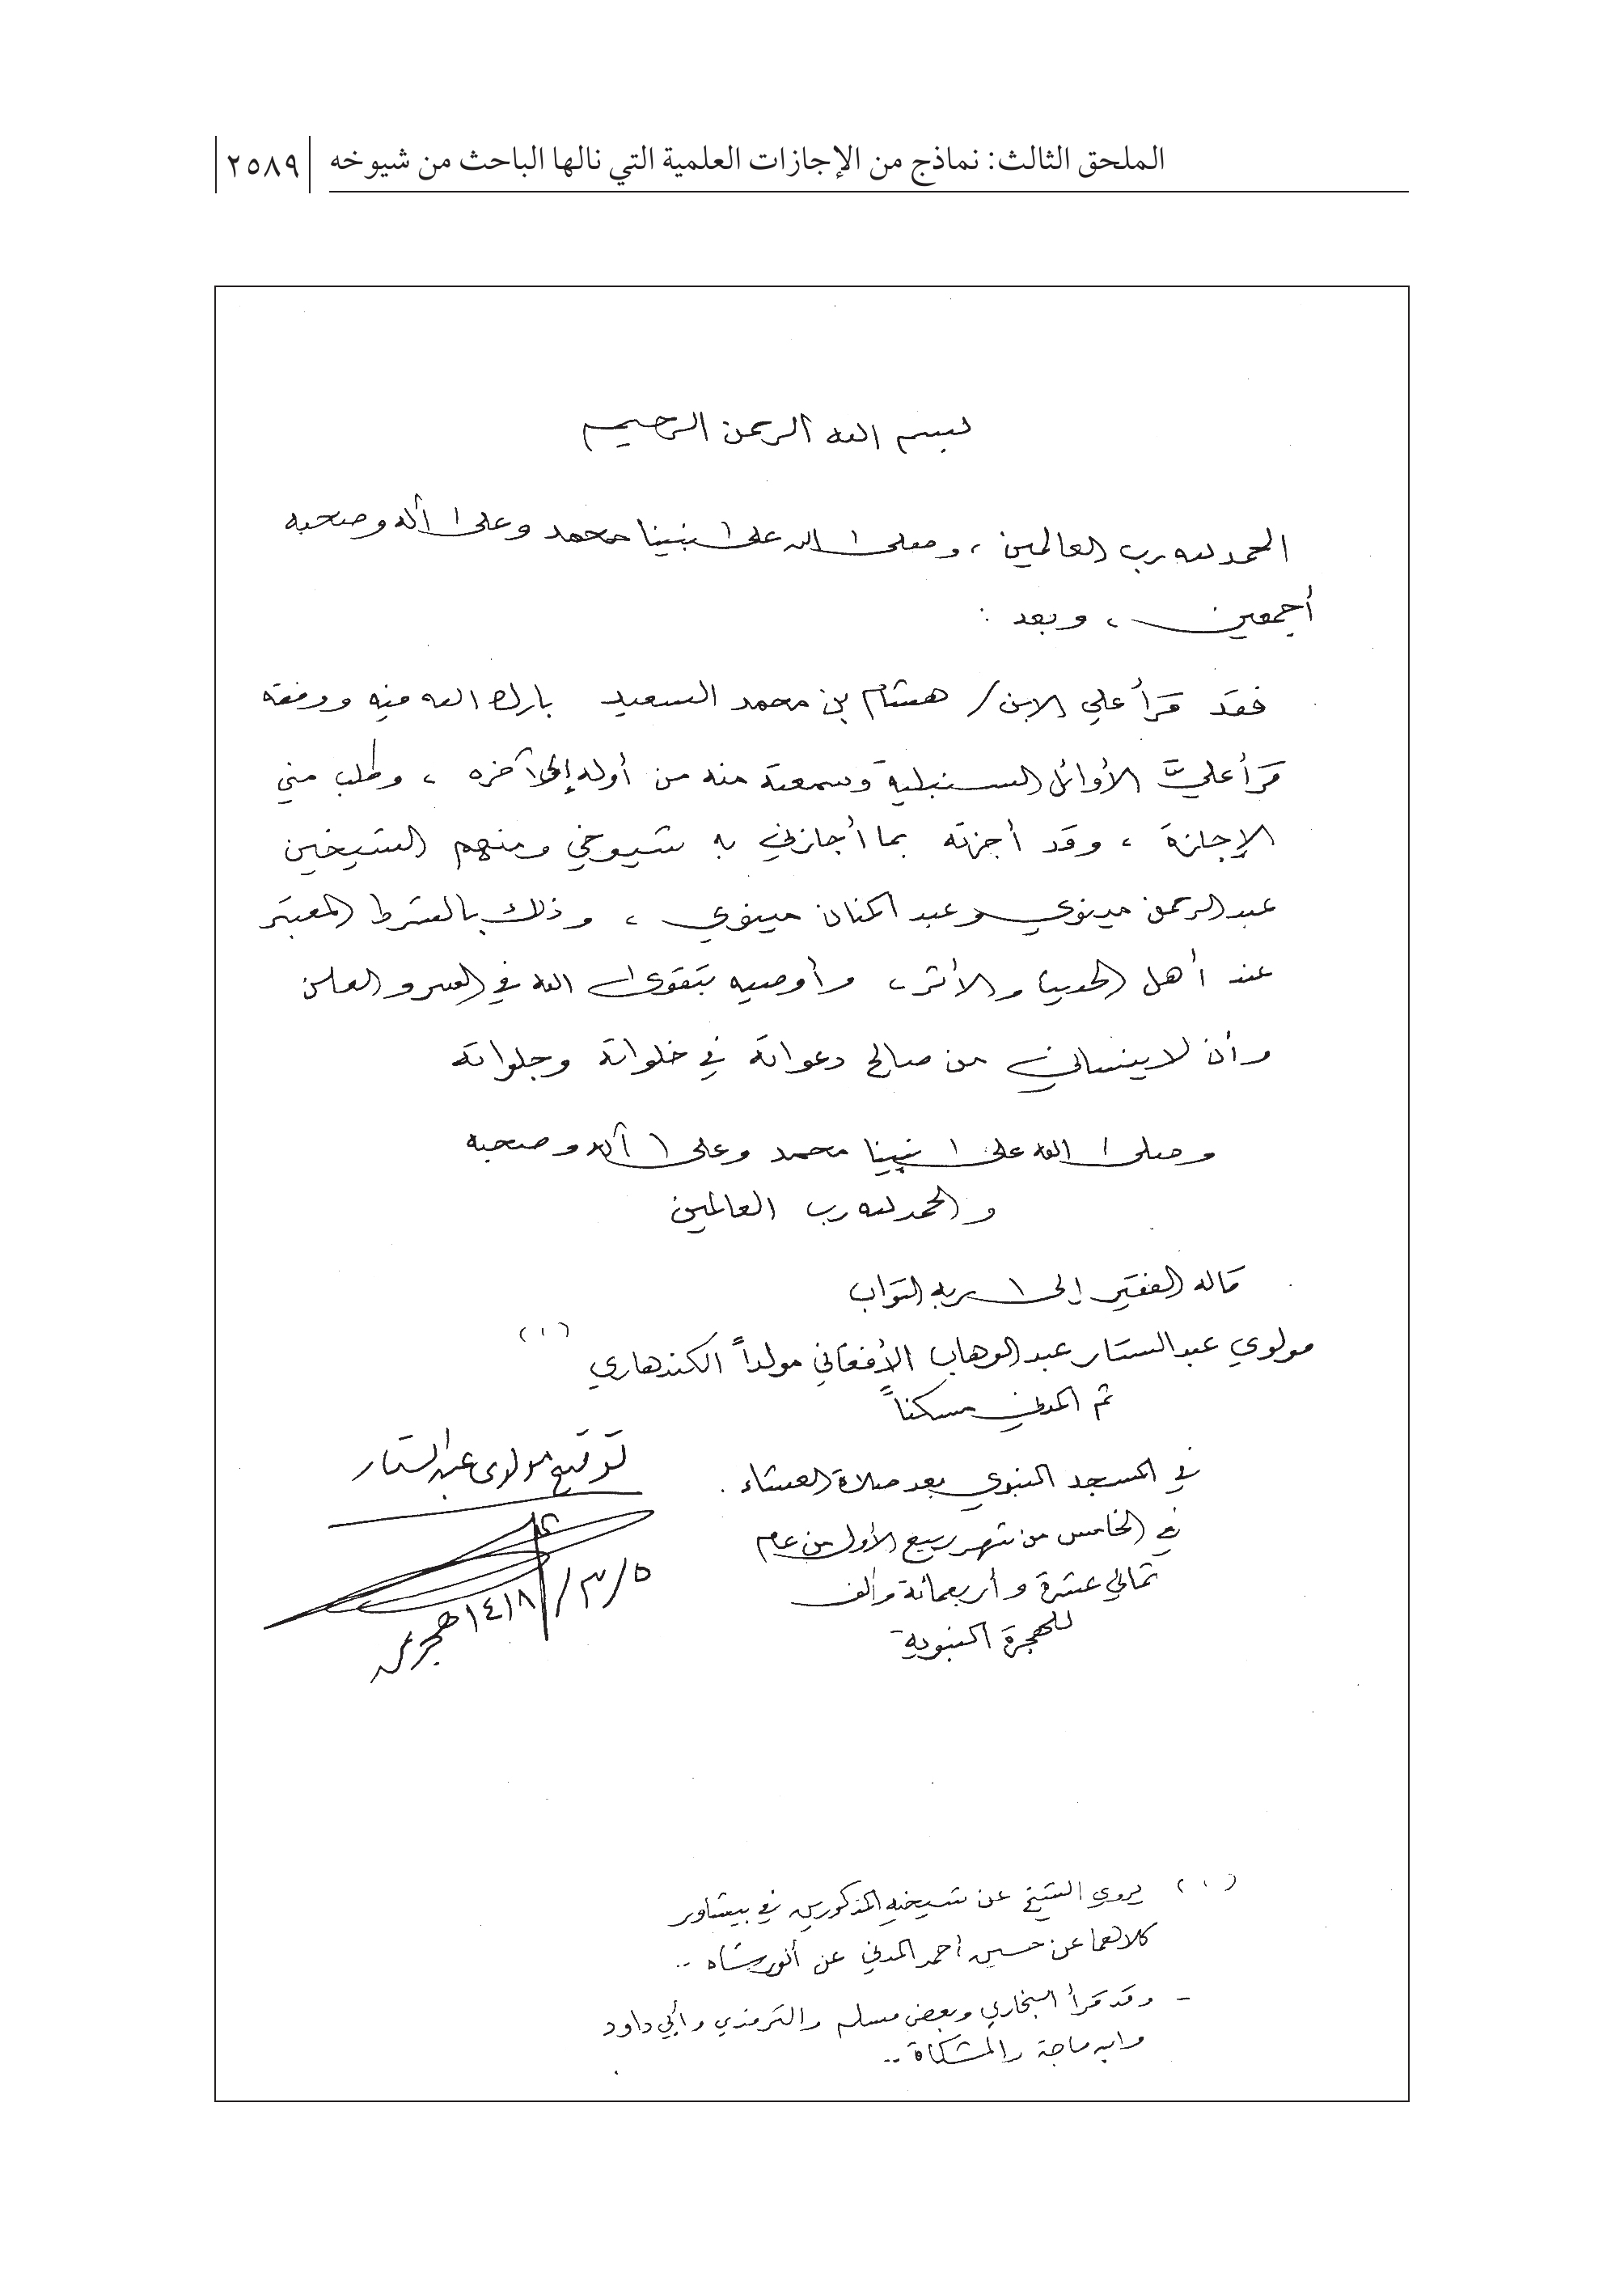 الملحق الثالث: نماذج من الإجازات العلمية التي نالها الباحث من شيوخه ٢٥٨٩
بسم الله الرحمن الرحيم
الحمد لله رب العالمين ، وصلى الله على نبينا محمد وعلى آله وصحبه
أجمعين ، وبعد :
فقد قرأ علي الابن / هشام بن محمد السعيد بارك الله فيه ووفقه
قرأ عليَّ الأوائل السنبلية وسمعته منه من أوله إلى آخره ، وطلب مني
الإجازة ، وقد أجزته بما أجازني به شيوخي ومنهم الشيخين
عبد الرحمن مينوي وعبد الحنان مينوي ، وذلك بالشرط المعتبر
عند أهل الحديث والأثر ، وأوصيه بتقوى الله في السر والعلن
وأن لا ينساني من صالح دعواته في خلواته وجلواته
وصلى الله على نبينا محمد وعلى آله وصحبه
والحمد لله رب العالمين
قاله الفقير إلى ربه التواب
مولوي عبد الستار عبد الوهاب الأفغاني مولداً الكندهاري (١)
ثم المدني مسكناً
توقيع مولوي عبد الستار
في المسجد النبوي بعد صلاة العشاء .
في الخامس من شهر ربيع الأول من عام
ثماني عشرة وأربعمائة وألف
للهجرة النبوية
٥/٣/١٤١٨ هجري
(١) يروي الشيخ عن شيخيه المذكورين في بيشاور
كلاهما عن حسين أحمد المدني عن أنور شاه ..
- وقد قرأ البخاري وبعض مسلم والترمذي وأبي داود
وابن ماجة والمشكاة ..